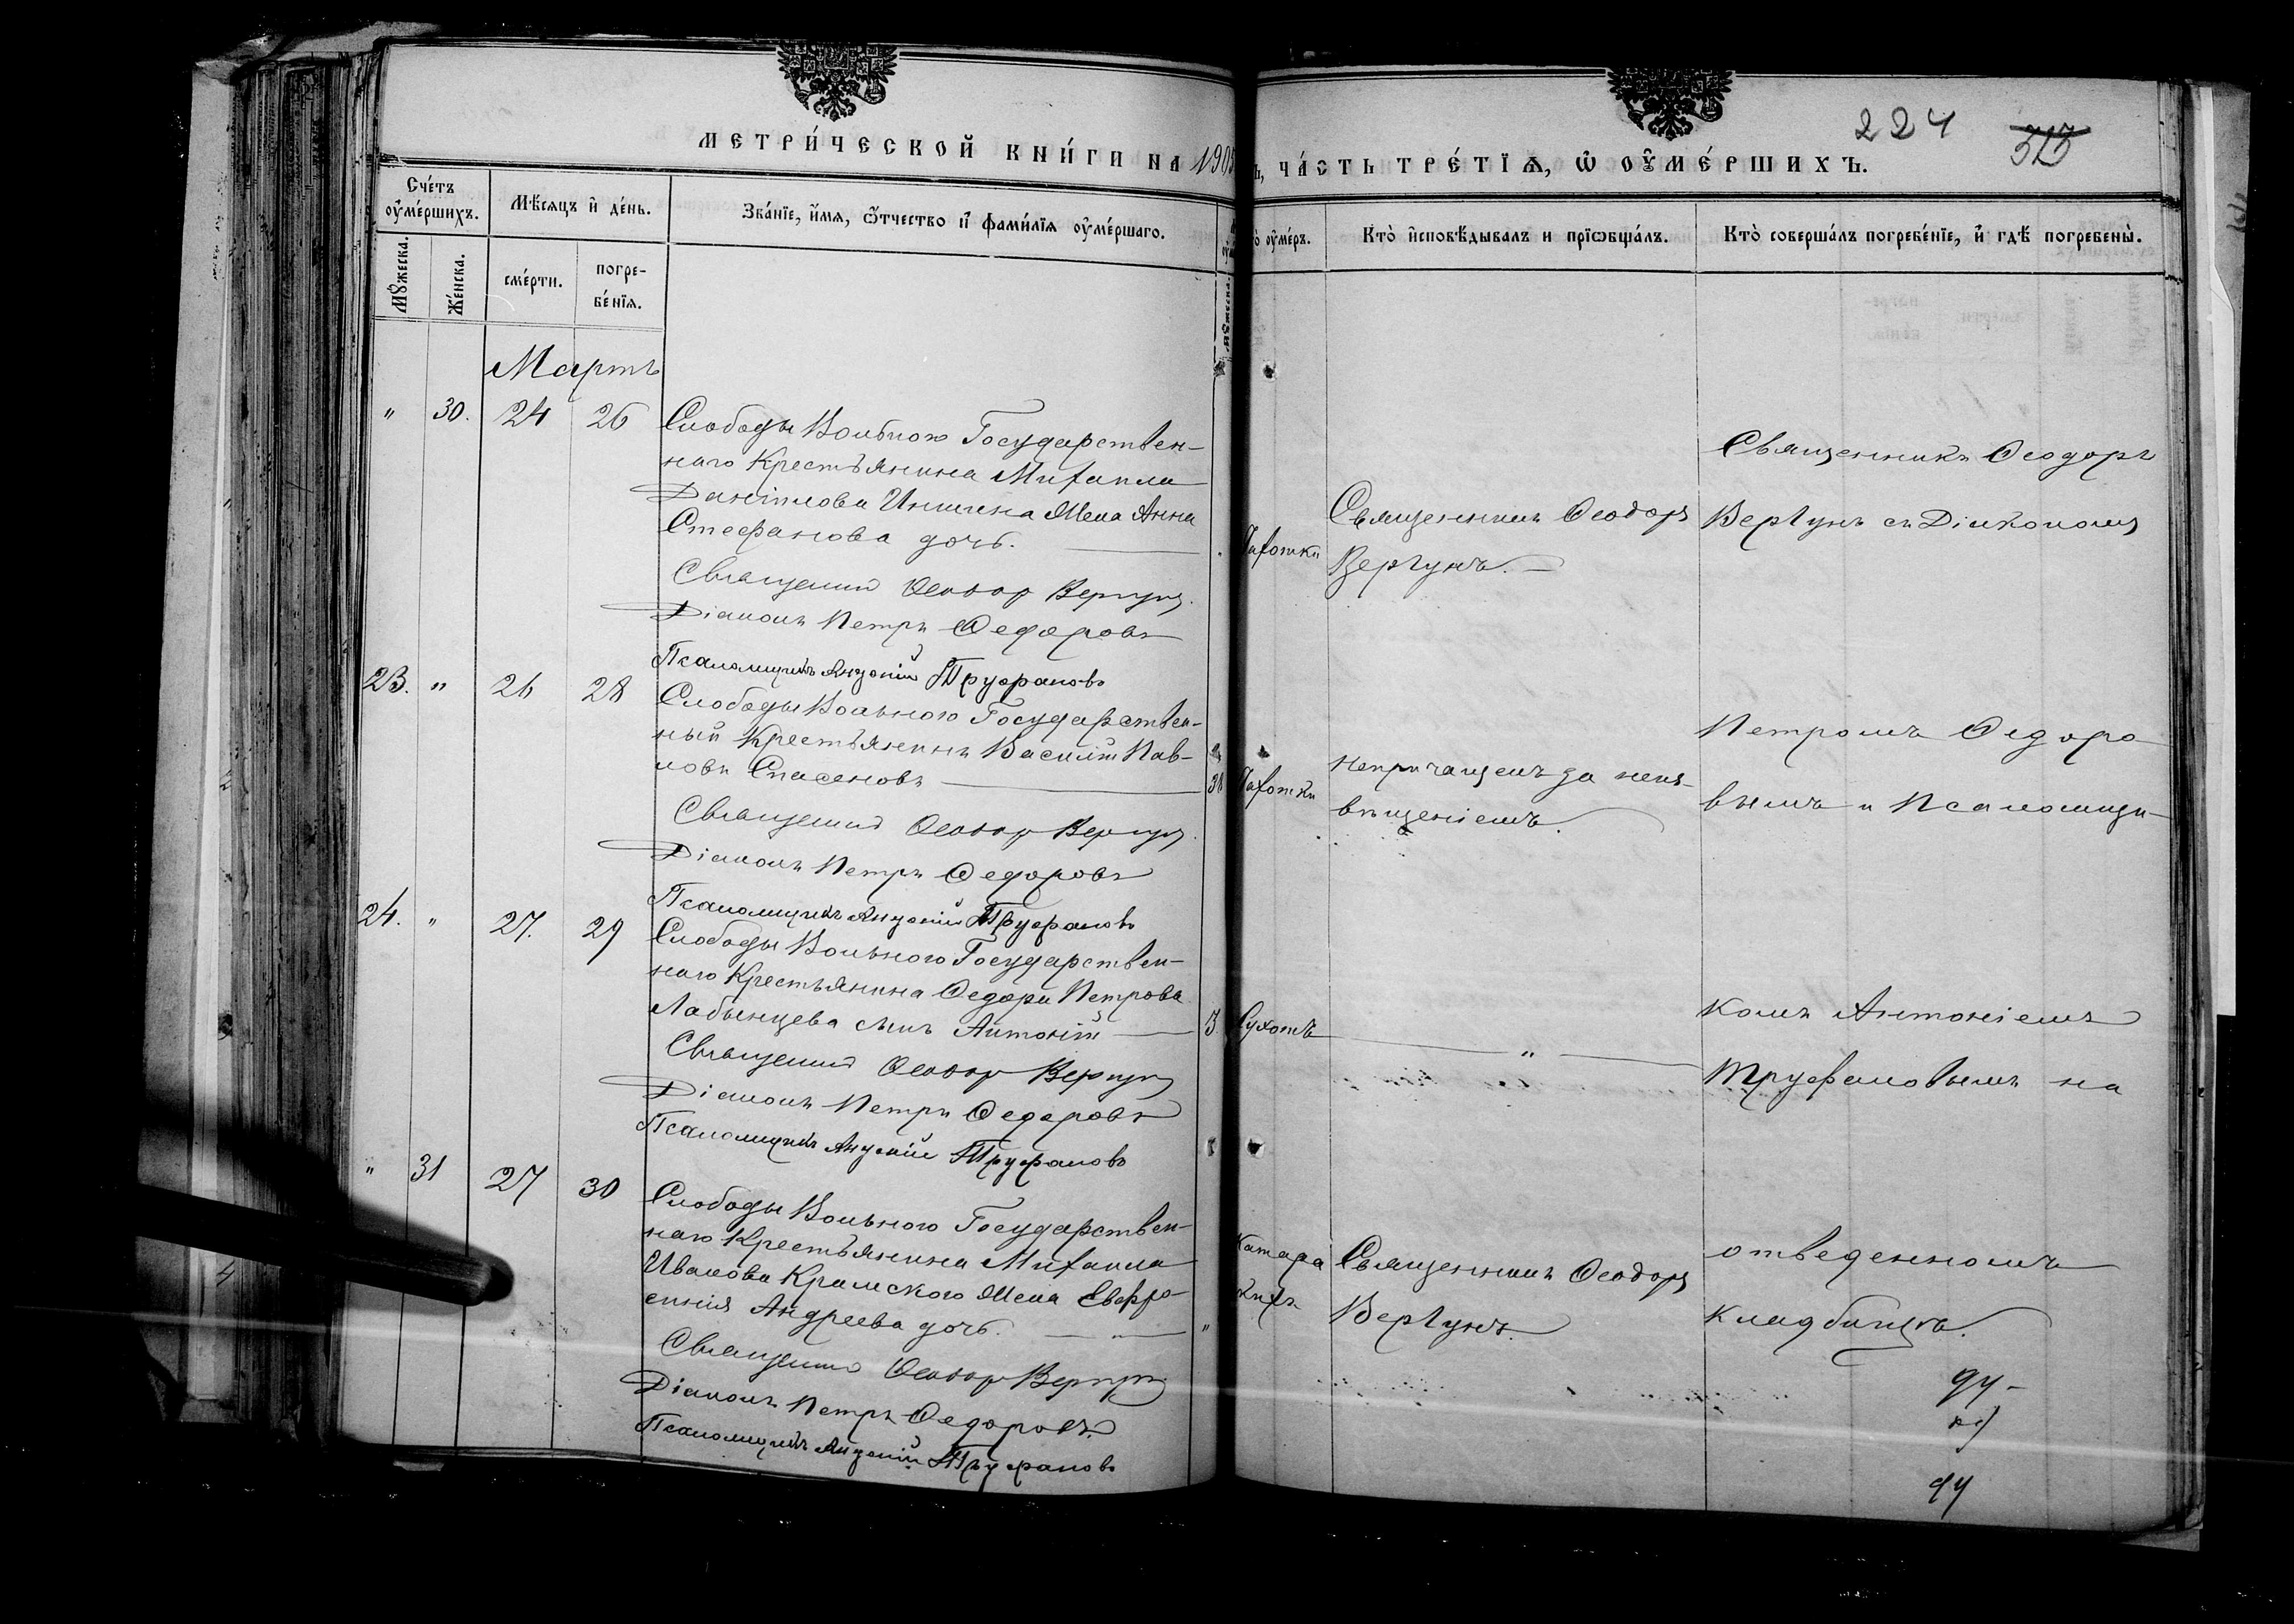 МЕТРИ́ЧЕСКОЙ КНИ́ГИ НА 1905
Ъ, ЧА́СТЬ ТРЕ́ТІѦ, Ѡ҆ ОУ҆МЕ́РШИХЪ.
224
313
Сче́тъ
оу҆ме́ршихъ.
Мѣ́сяцъ и҆ де́нь.
Зва́нїе, и҆́мя, ѻ҆́тчество и҆ фами́лїѧ оу҆ме́ршаго.
о оу҆ме́ръ.
Кто̀ и҆сповѣ́дывалъ и прїѡбща́лъ.
Кто̀ соверша́лъ погребе́нїе, и҆ гдѣ̀ погребены̀.
Мꙋ́жеска.
Же́нска.
сме́рти.
погре-
бе́нїѧ.
Мартъ
" 30. 24 26
Слободы Вольного Государствен-
наго Крестьянина Михаила
Даніилова жена Анна
Стефанова дочь.
Священникъ Ѳеодоръ Вергунъ.
Діаконъ Петръ Ѳедоровъ
Псаломщикъ Антоній Труфановъ
Чахотки
Священникъ Ѳеодоръ
Вергунъ.
Священникъ Ѳеодоръ
Вергунъ съ Діакономъ
23. " 26 28
Слободы Вольного Государствен-
ный Крестьянинъ Василій Пав-
ловъ Спасеновъ
Священникъ Ѳеодоръ Вергунъ.
Діаконъ Петръ Ѳедоровъ
Псаломщикъ Антоній Труфановъ
38
Чахотки
непричащенъ за неиз-
вѣщеніемъ.
Петромъ Ѳедоро-
вымъ и Псаломщи-
24. " 27. 29
Слободы Вольного Государствен-
наго Крестьянина Ѳедора Петрова
Лабынцева сынъ Антоній
Священникъ Ѳеодоръ Вергунъ
Діаконъ Петръ Ѳедоровъ
Псаломщикъ Антоній Труфановъ
3
Сухотъ
"
комъ Антоніемъ
Труфановымъ на
" 31 27 30
Слободы Вольного Государствен-
наго Крестьянина Михаила
Иванова Крамского жена Евфро-
синія Андреева дочь.
Священникъ Ѳеодоръ Вергунъ
Діаконъ Петръ Ѳедоровъ
Псаломщикъ Антоній Труфановъ
"
Священникъ Ѳеодоръ
Вергунъ.
отведенномъ
кладбищѣ.